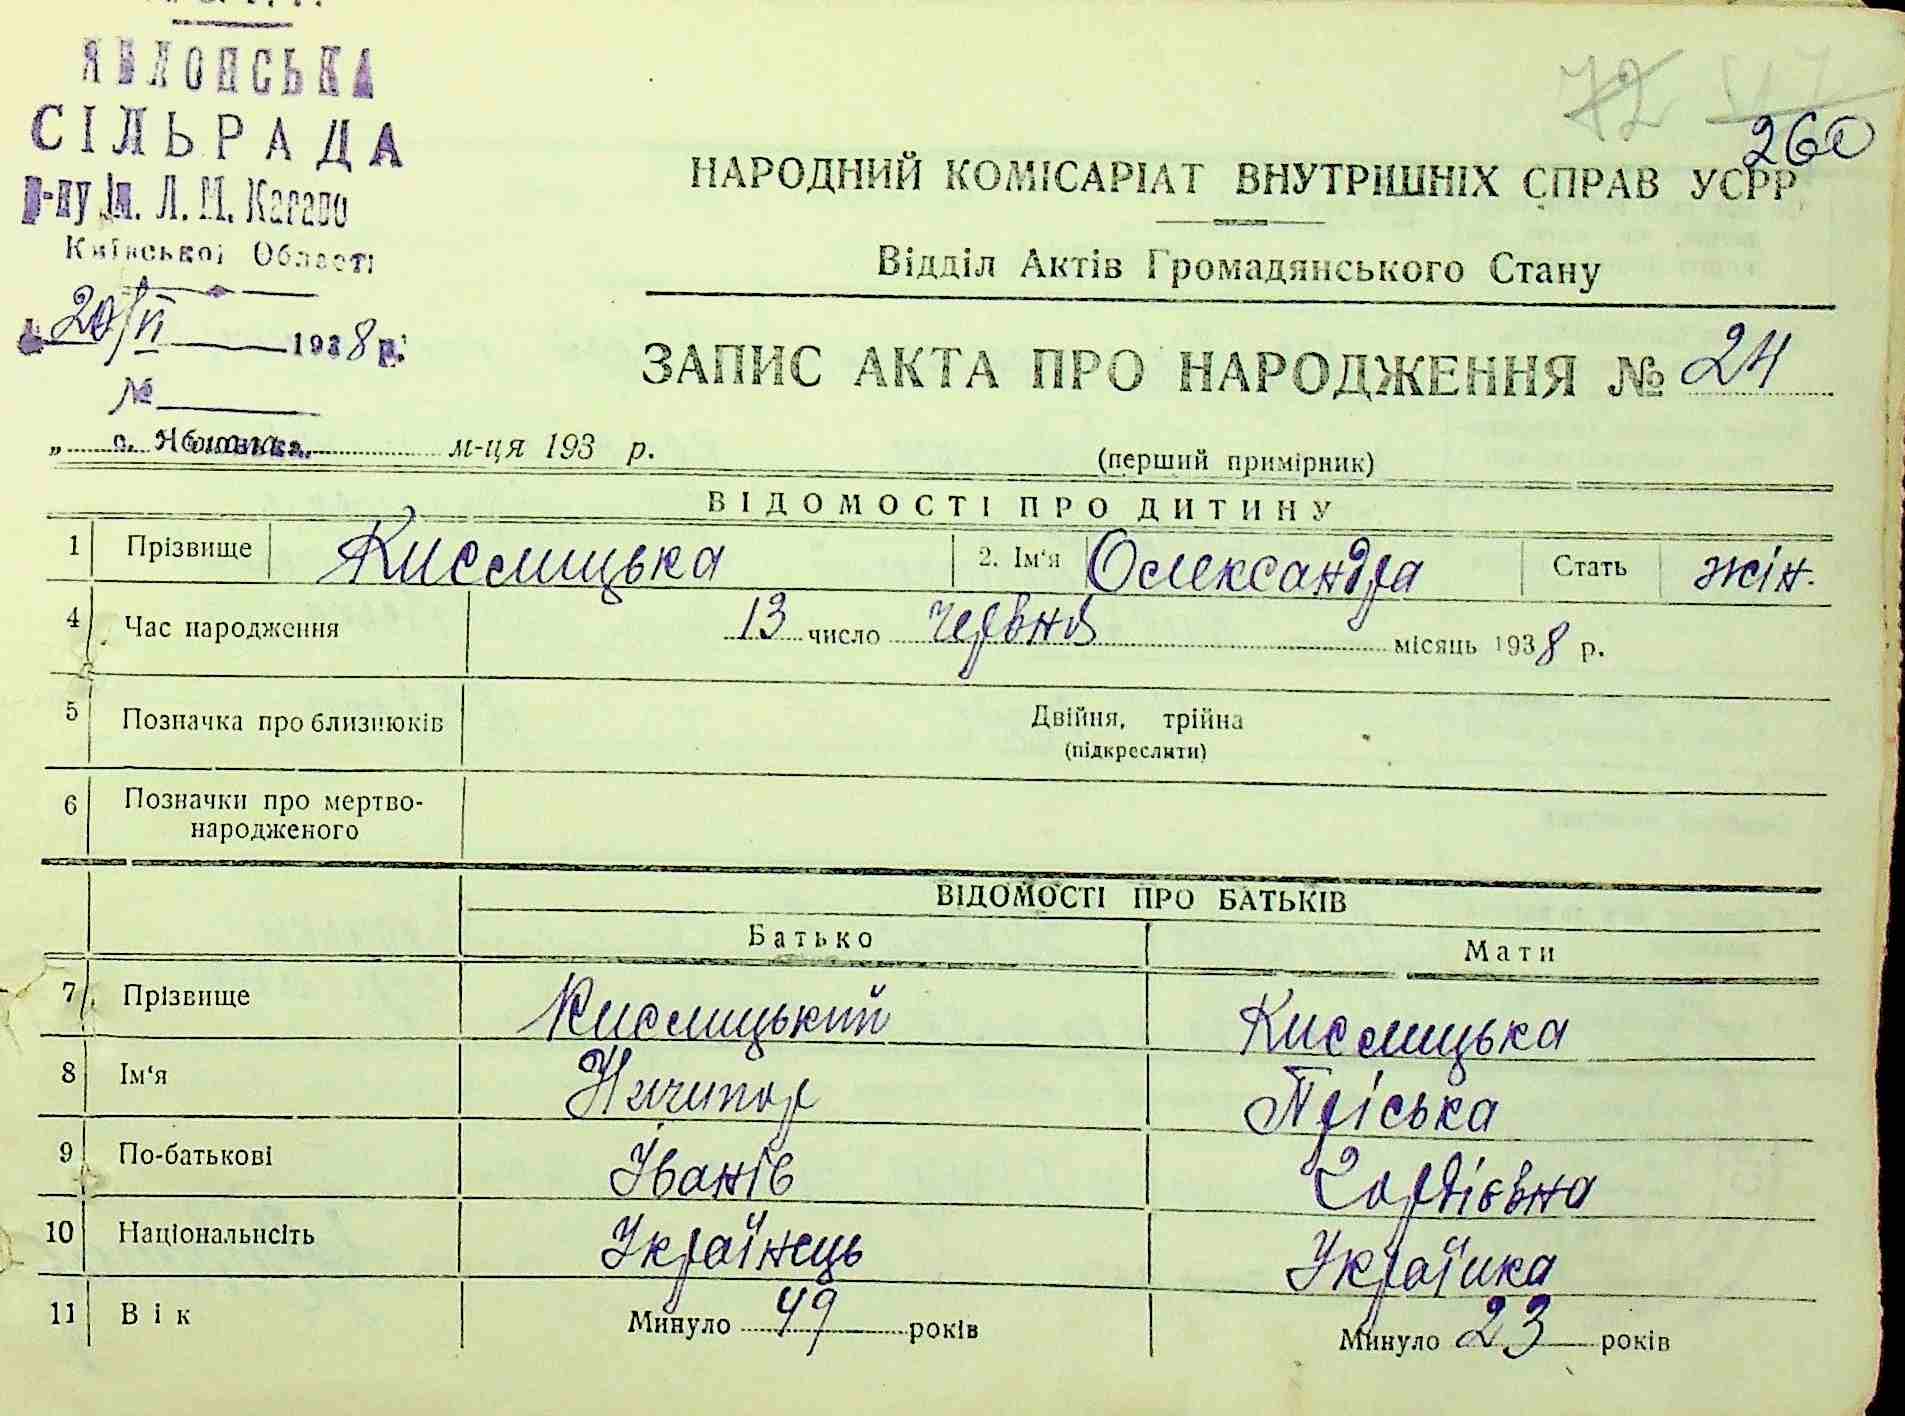 ЯБЛОНСЬКА
СІЛЬРАДА
р-ну ім. Л. М. Кагано
Київської Області
20/VI 1938 р.
№
с. Яблонівка.
72 517
260
НАРОДНИЙ КОМІСАРІАТ ВНУТРІШНІХ СПРАВ УСРР
Відділ Актів Громадянського Стану
ЗАПИС АКТА ПРО НАРОДЖЕННЯ № 24
„ м-ця 193 р.
(перший примірник)
ВІДОМОСТІ ПРО ДИТИНУ
1 Прізвище Кислицька 2. Ім'я Олександра Стать жін.
4 Час народження 13 число червня місяць 1938 р.
5 Позначка про близнюків Двійня, трійна
(підкреслити)
6 Позначки про мертво-
народженого
ВІДОМОСТІ ПРО БАТЬКІВ
Батько Мати
7 Прізвище Кислицький Кислицька
8 Ім'я Ничипор Пріська
9 По-батькові Іванів Гордієвна
10 Національнсіть Українець Українка
11 Вік Минуло 49 років Минуло 23 років